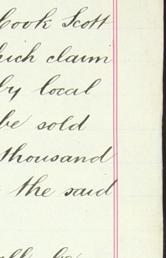 Cook Scott
which claim
by local
be sold
thousand
the said
be